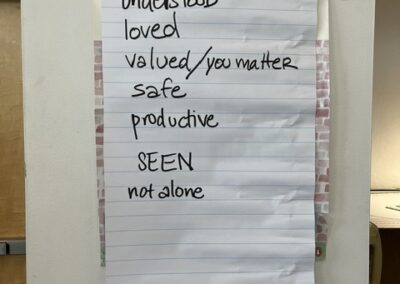 understood
loved
valued/you matter
safe
productive
SEEN
not alone